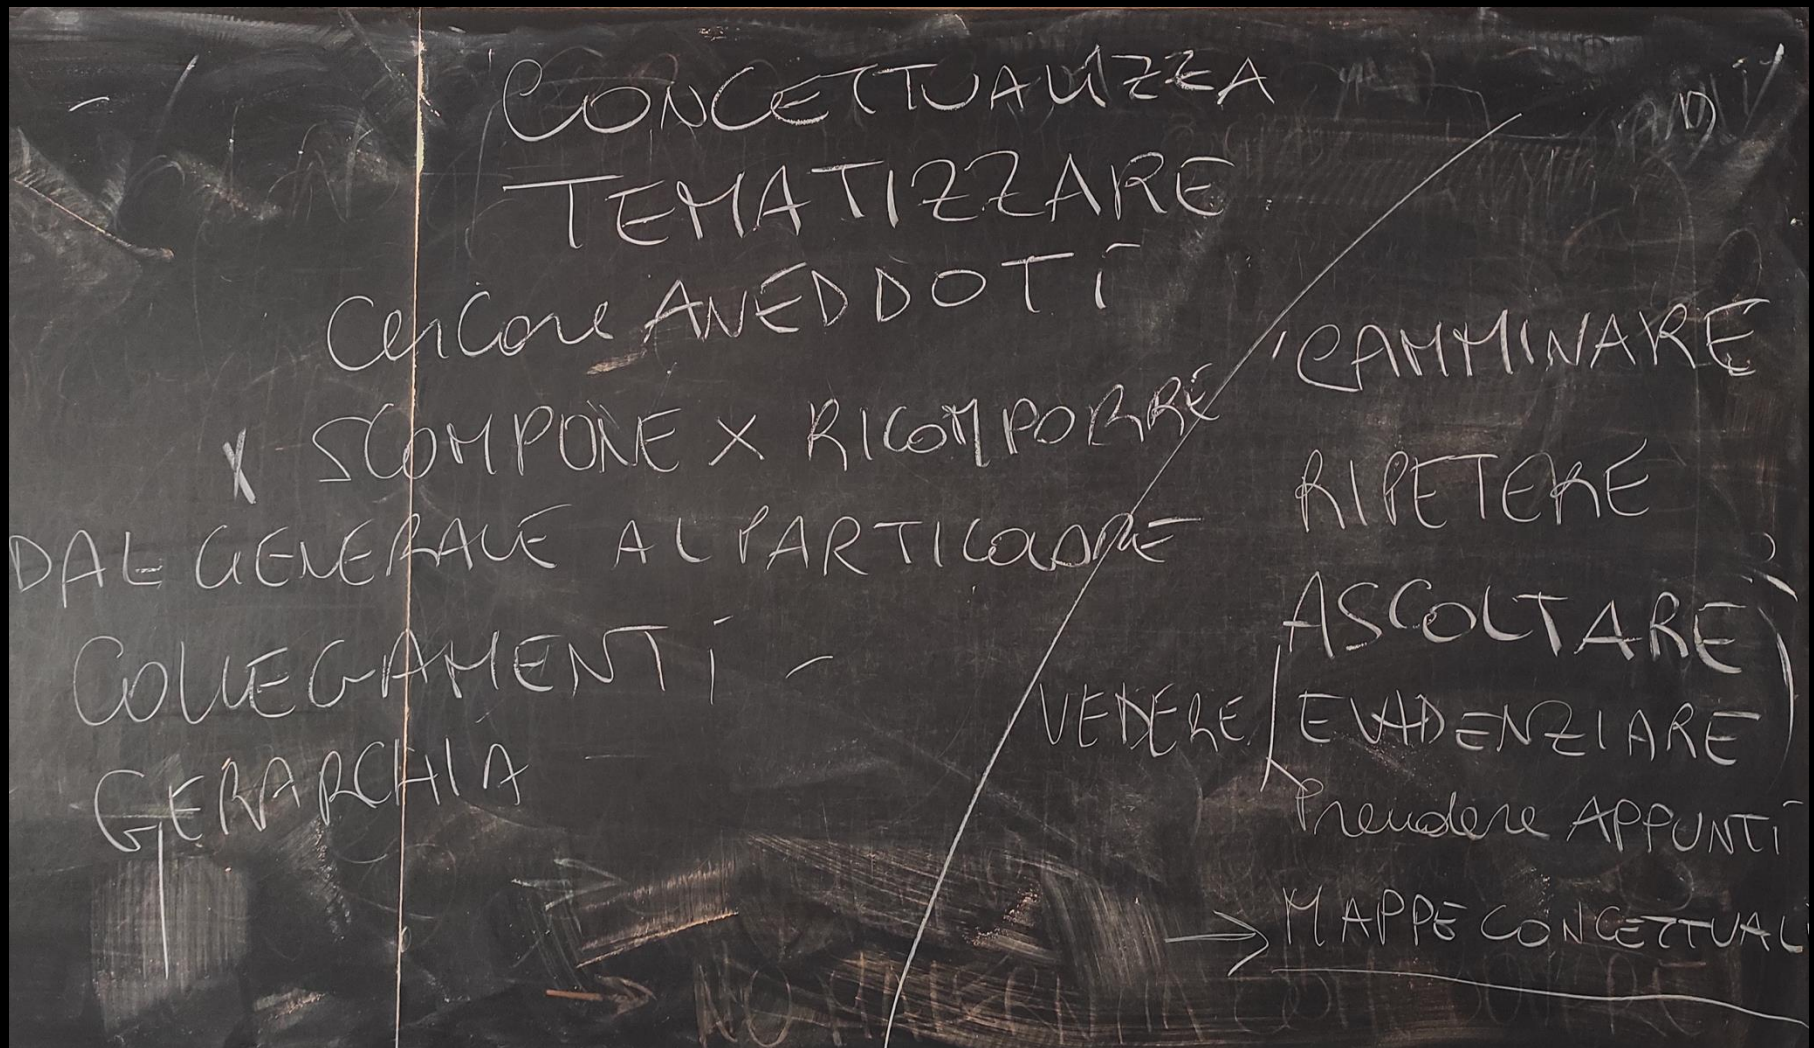 CONCETTUALIZZA
TEMATIZZARE
Cercare ANEDDOTI
X SCOMPONE X RICOMPORRE
DAL GENERALE AL PARTICOLARE
COLLEGAMENTI -
GERARCHIA
CAMMINARE
RIPETERE
ASCOLTARE
VEDERE EVIDENZIARE
Prendere APPUNTI
→ MAPPE CONCETTUAL